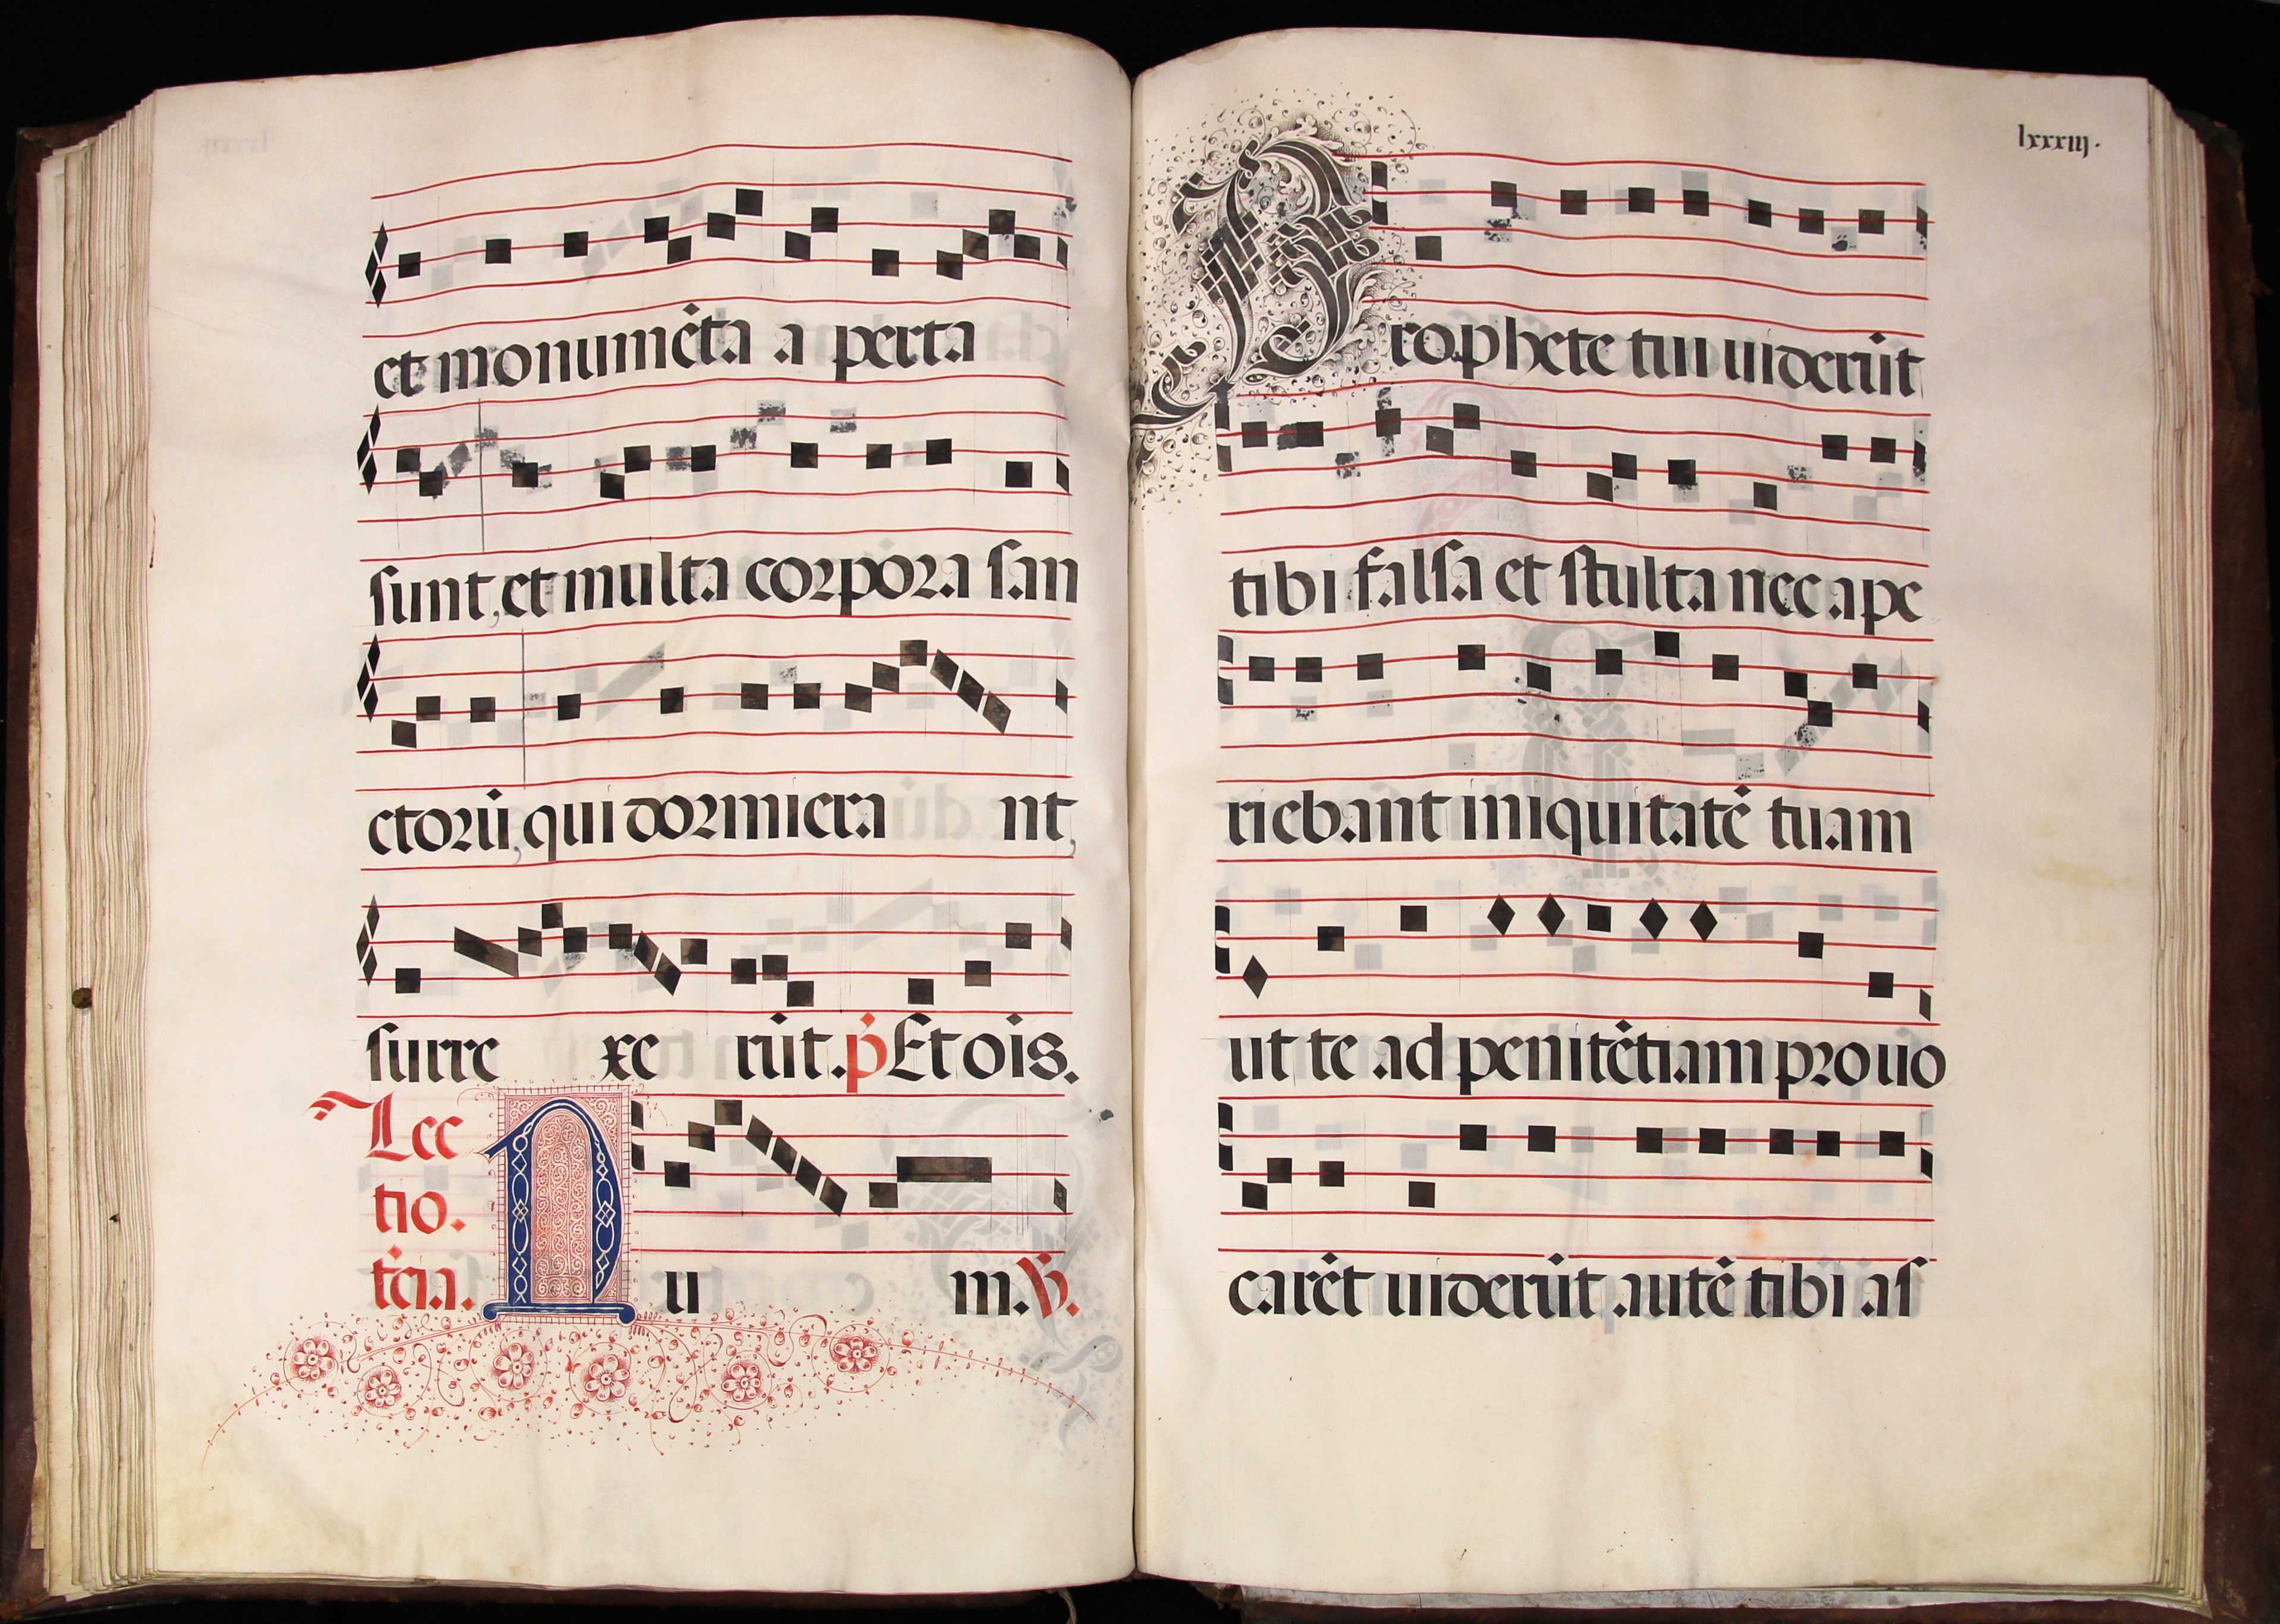 et monumẽta a perta
sunt, et multa corpora san
ctorũ, qui dormiera nt,
surre xe rũt. p̃ Et oĩs.
Lec
tio.
tc̃ia. N u m. ℟.
lxxxiij.
Prophete tui uiderũt
tibi falsa et stulta nec ape
riebant iniquitatẽ tuam
ut te ad penitẽtiam prouo
carẽt uiderũt autẽ tibi as